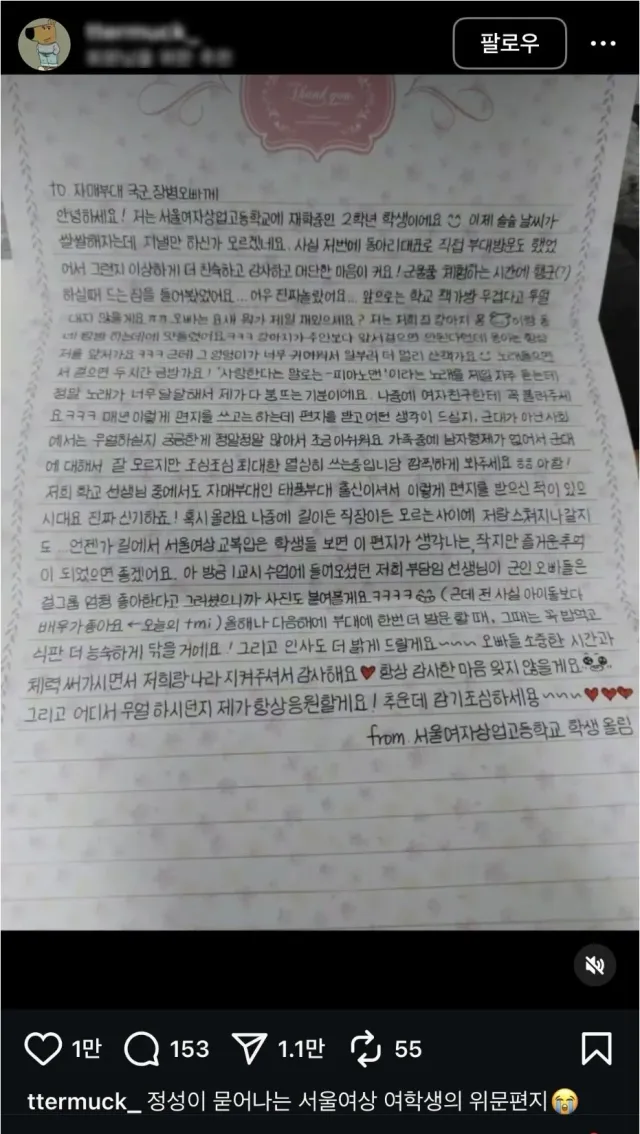 ttermuck_
팔로우
Thank you
to 자매부대 국군 장병오빠께
안녕하세요! 저는 서울여자상업고등학교에 재학중인 2학년 학생이에요 이제 슬슬 날씨가
쌀쌀해지는데 지낼만 하신가 모르겠네요. 사실 저번에 동아리대표로 직접 부대방문도 했었
어서 그런지 이상하게 더 친숙하고 감사하고 대단한 마음이 커요! 군용품 체험하는 시간에 행군(?)
하실때 드는 짐을 들어봤었어요... 어우 진짜놀랐어요... 앞으로는 학교 책가방 무겁다고 투덜
대지 않을게요ㅠㅠ 오빠는 요새 뭐가 제일 재밌으세요? 저는 저희 집 강아지 몽 이랑 동
네 탐방 하는데에 맛들렸어요ㅋㅋㅋ 강아지가 주인보다 앞서걸으면 안된다던데 몽이는 항상
저를 앞서가요ㅋㅋㅋ 근데 그 엉덩이가 너무 귀여워서 일부러 더 멀리 산책가요 노래들으면
서 걸으면 두시간 금방가요! '사랑한다는 말로는-피아노맨'이라는 노래를 제일 자주 듣는데
정말 노래가 너무 달달해서 제가 다 붕뜨는 기분이에요. 나중에 여자친구한테 꼭 불러주세
요ㅋㅋㅋ 매년 이렇게 편지를 쓰고는 하는데 편지를 받고 어떤 생각이 드실지, 군대가 아닌 사회
에서는 무얼하실지 궁금한게 정말정말 많아서 조금 아쉬워요 가족중에 남자형제가 없어서 군대
에 대해서 잘 모르지만 조심조심 최대한 열심히 쓰는중입니당 깜찍하게 봐주세요 ㅎㅎ 아 참!
저희 학교 선생님 중에서도 자매부대인 태풍부대 출신이셔서 이렇게 편지를 받으신 적이 있으
시대요 진짜 신기하죠! 혹시 몰라요 나중에 길이든 직장이든 모르는사이에 저랑 스쳐지나갈지
도... 언젠가 길에서 서울여상교복입은 학생들 보면 이 편지가 생각나는, 작지만 즐거운추억
이 되었으면 좋겠어요. 아 방금 1교시 수업에 들어오셨던 저희 부담임 선생님이 군인 오빠들은
걸그룹 엄청 좋아한다고 그러셨으니까 사진도 붙여볼게요ㅋㅋㅋㅋ (근데 전 사실 아이돌보다
배우가좋아요 ←오늘의 tmi) 올해나 다음해에 부대에 한번 더 방문 할 때, 그때는 꼭 밥먹고
식판 더 능숙하게 닦을 거에요! 그리고 인사도 더 밝게 드릴게요~~~ 오빠들 소중한 시간과
체력 써가시면서 저희랑 나라 지켜주셔서 감사해요♥ 항상 감사한 마음 잊지 않을게요
그리고 어디서 무얼 하시던지 제가 항상응원할게요! 추운데 감기조심하세용~~~♥♥♥
from. 서울여자상업고등학교 학생 올림
1만 153 1.1만 55
ttermuck_ 정성이 묻어나는 서울여상 여학생의 위문편지😭